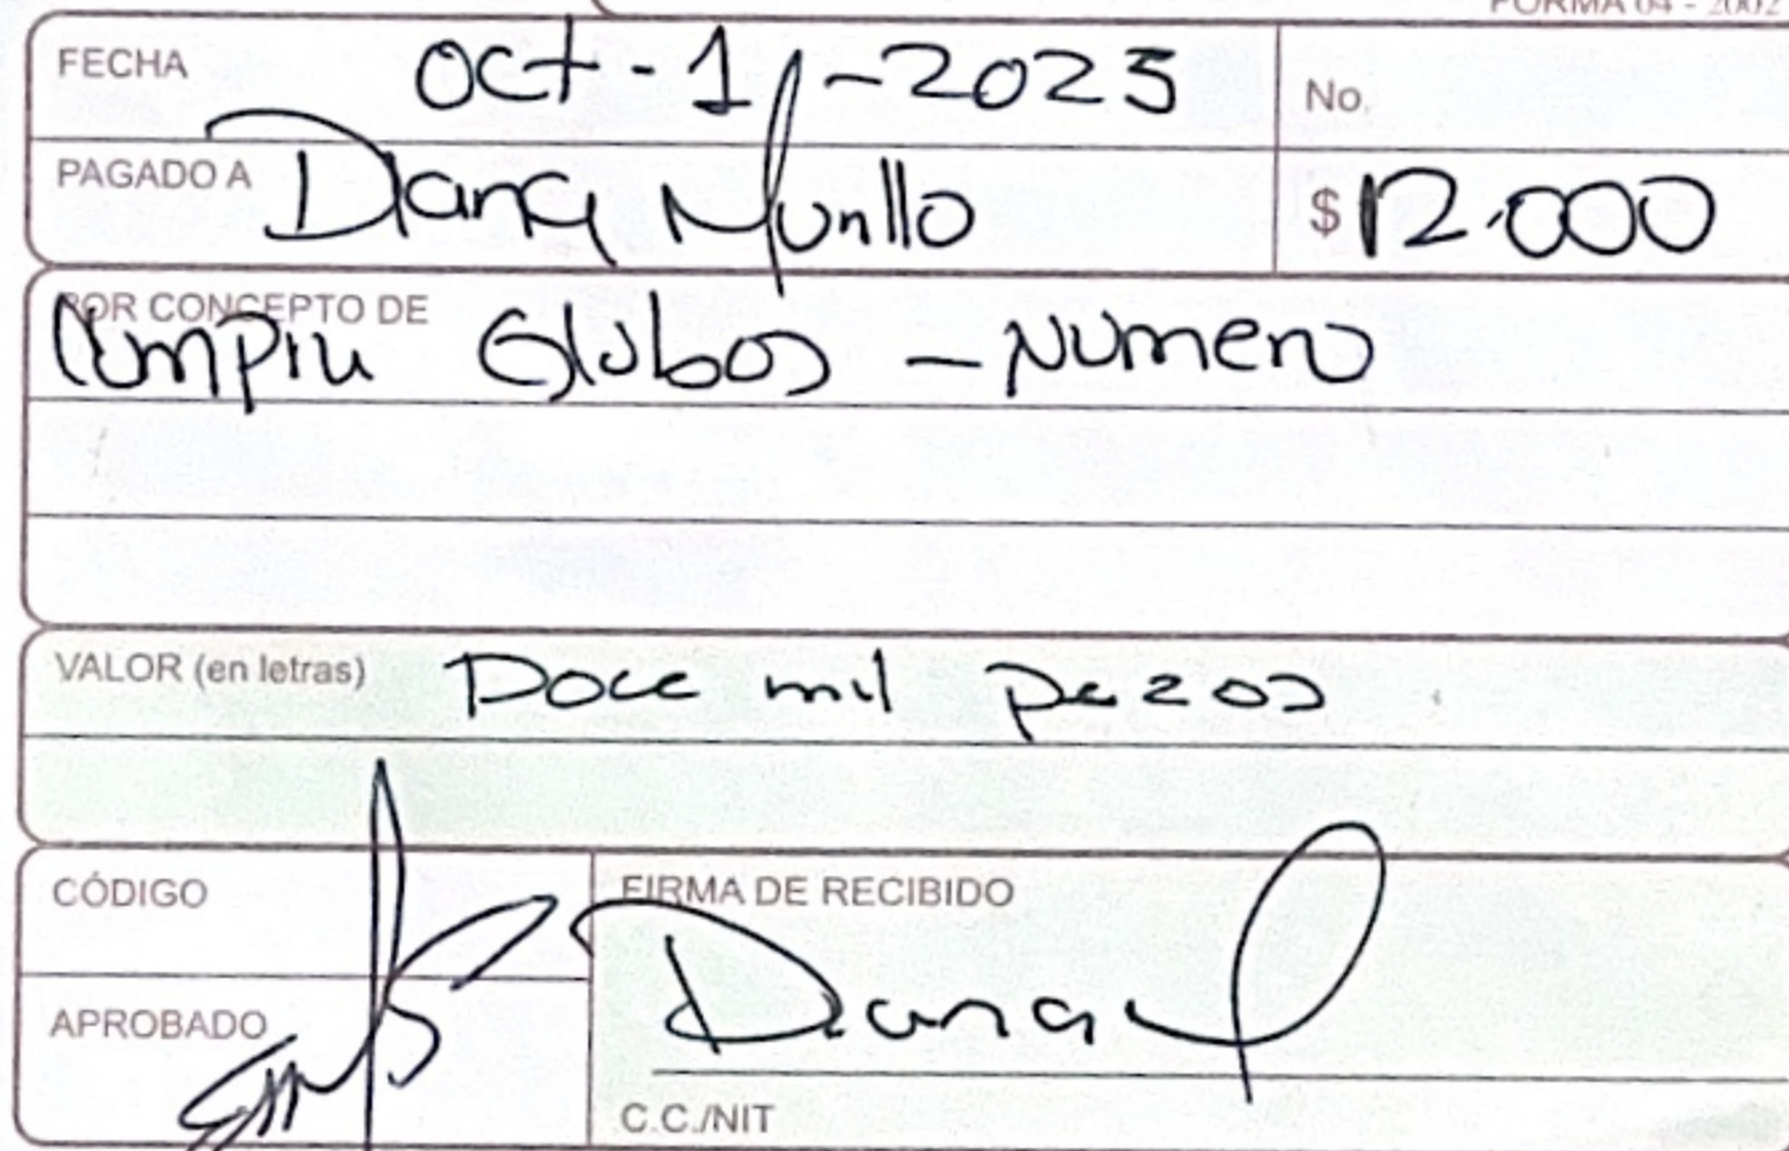 FORMA 04 - 2002
FECHA oct-1-2023 No.
PAGADO A Diana Murillo $ 12.000
POR CONCEPTO DE
Compra Globos - Numero
VALOR (en letras) Doce mil pezos
CÓDIGO FIRMA DE RECIBIDO
APROBADO Diana
C.C./NIT